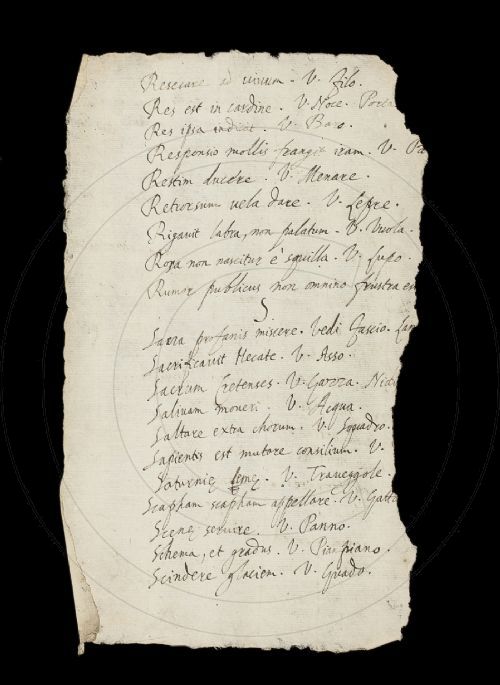 Resecare ad vivum. V. Filo.
Res est in cardine. V. Noce. Porta
Res ipsa indicat. V. Baro.
Responsio mollis frangit iram. V. Pa
Restim ducere. V. Menare.
Retrorsum vela dare. V. Lepre.
Rigavit labra, non palatum. V. Vuola.
Rosa non nascitur è squilla. V. Lupo.
Rumor publicus non omnino frustra est
S
Sacra profanis miscere. Vedi Fascio.
Sacrificavit Hecate. V. Asso.
Sacrum Cretenses. V.
Salivam moveri. V. Acqua.
Saltare extra chorum. V. Squadro.
Sapientis est mutare consilium. V.
Saturnię lemę. V. Traveggole.
Scapham scapham appellare. V. Gatta
Scenę servire. V. Panno.
Schema, et gradus. V. Pian piano.
Scindere glaciem. V. Guado.